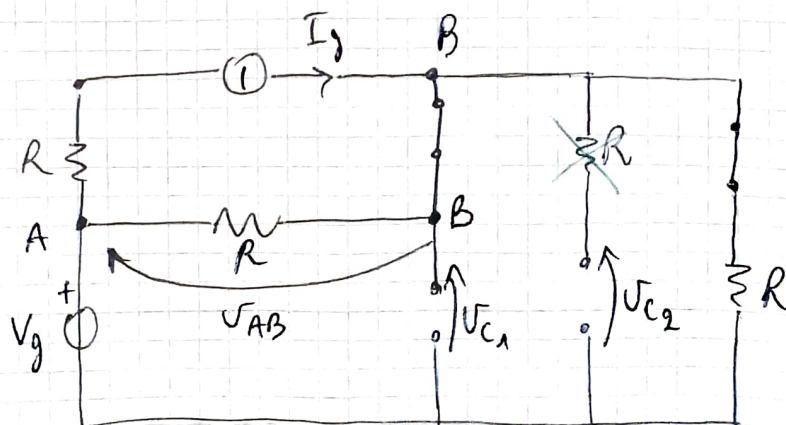 I_g B
R R
A R B
+
V_g V_AB V_C1 V_C2 R